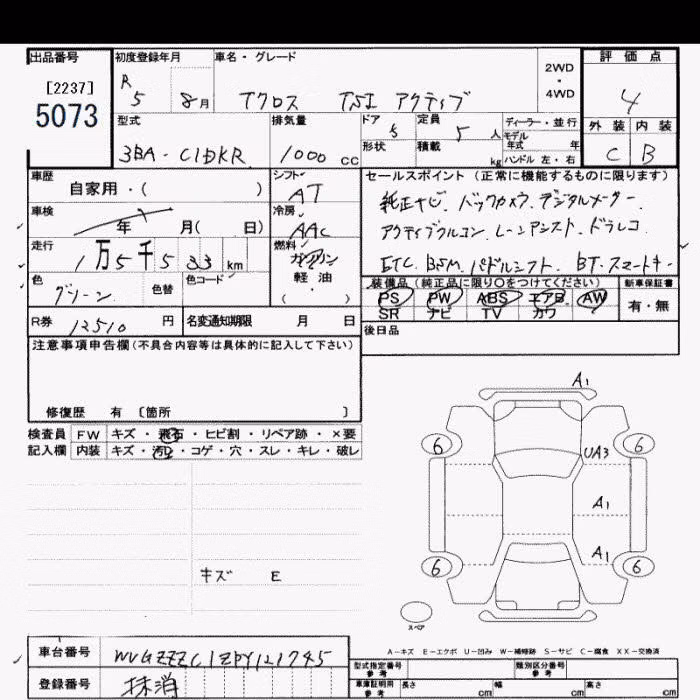 出品番号 初度登録年月 車名・グレード 評価点
[2237] R 2WD
5073 5 8月 Tクロス TSI アクティブ ・ 4
4WD
型式 排気量 ドア 5 定員 5人 ディーラー・並行 外装 内装
モデル年式 年
3BA-C1DKR 1000cc 形状 積載 kg ハンドル 左・右 C B
車歴 自家用・( ) シフト AT セールスポイント (正常に機能するものに限ります)
車検 年 月( 日) 冷房 AAC 純正ナビ、バックカメラ、デジタルメーター
走行 1万5千533km 燃料 ガソリン アクティブクルコン、レーンアシスト、ドラレコ
軽・油 ETC BSM パドルシフト BT スマートキー
色 グリーン 色替 色コード ・( ) 装備品 (純正品に限り○をつけてください) 新車保証書
PS PW ABS エアB AW 有・無
R券 12510円 名変通知期限 月 日 SR ナビ TV カワ
後日品
注意事項申告欄(不具合内容等は具体的に記入して下さい)
修復歴 有 〔箇所 〕
検査員 FW キズ・飛石・ヒビ割・リペア跡・×要
記入欄 内装 キズ・汚れ・コゲ・穴・スレ・キレ・破レ
A1
6 6
UA3
A1
A1
6 6
キズ E
スペア
A-キズ E-エクボ U-凹み W-補修跡 S-サビ C-腐食 XX-交換済
車台番号 WVGZZZC1ZPY121745
型式指定番号 参考 類別区分番号 参考
登録番号 抹消
車庫証明用 参考 長さ cm 幅 cm 高さ cm